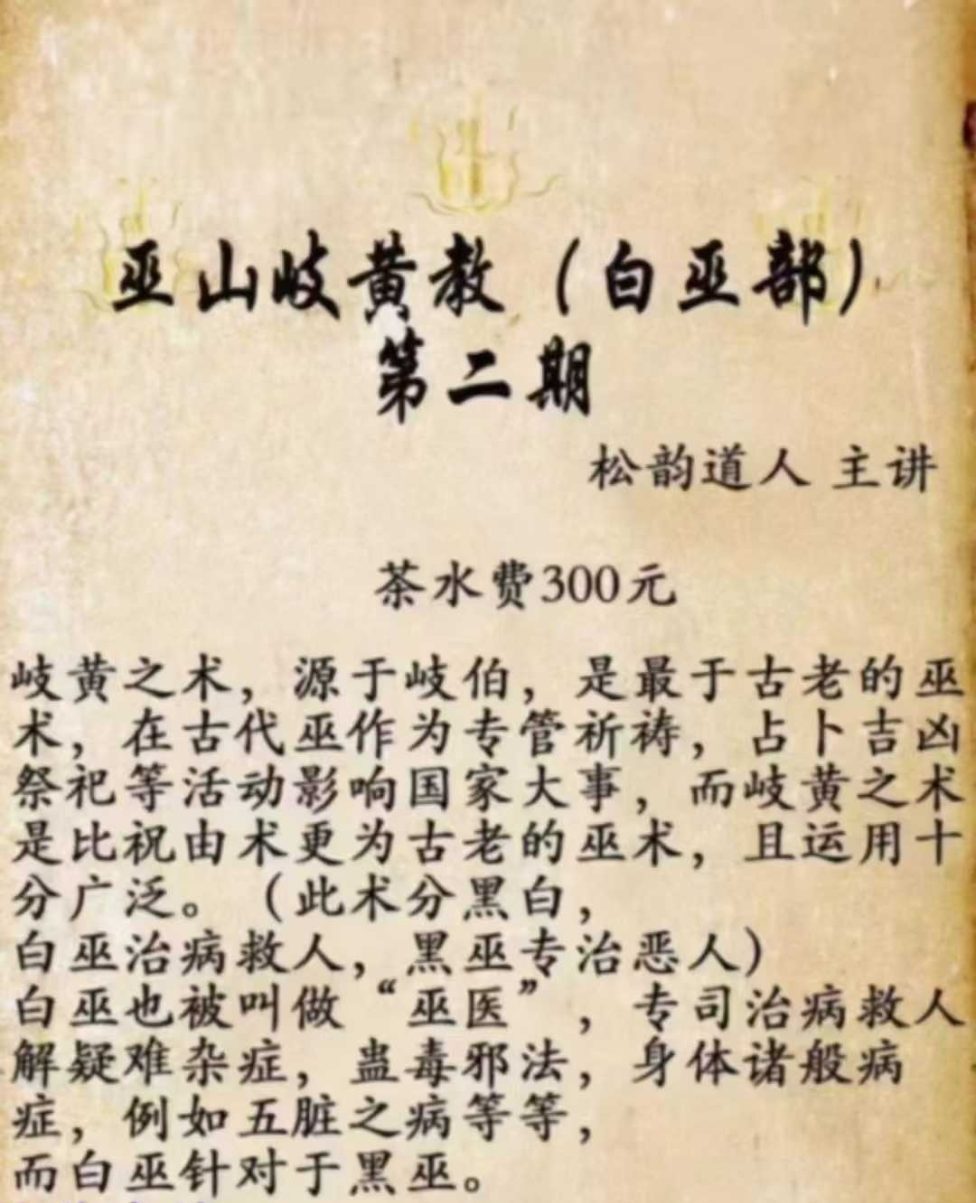 巫山岐黄教（白巫部）
第二期
松韵道人 主讲
茶水费300元
岐黄之术，源于岐伯，是最于古老的巫
术，在古代巫作为专管祈祷，占卜吉凶
祭祀等活动影响国家大事，而岐黄之术
是比祝由术更为古老的巫术，且运用十
分广泛。（此术分黑白，
白巫治病救人，黑巫专治恶人）
白巫也被叫做“巫医”，专司治病救人
解疑难杂症，蛊毒邪法，身体诸般病
症，例如五脏之病等等，
而白巫针对于黑巫。